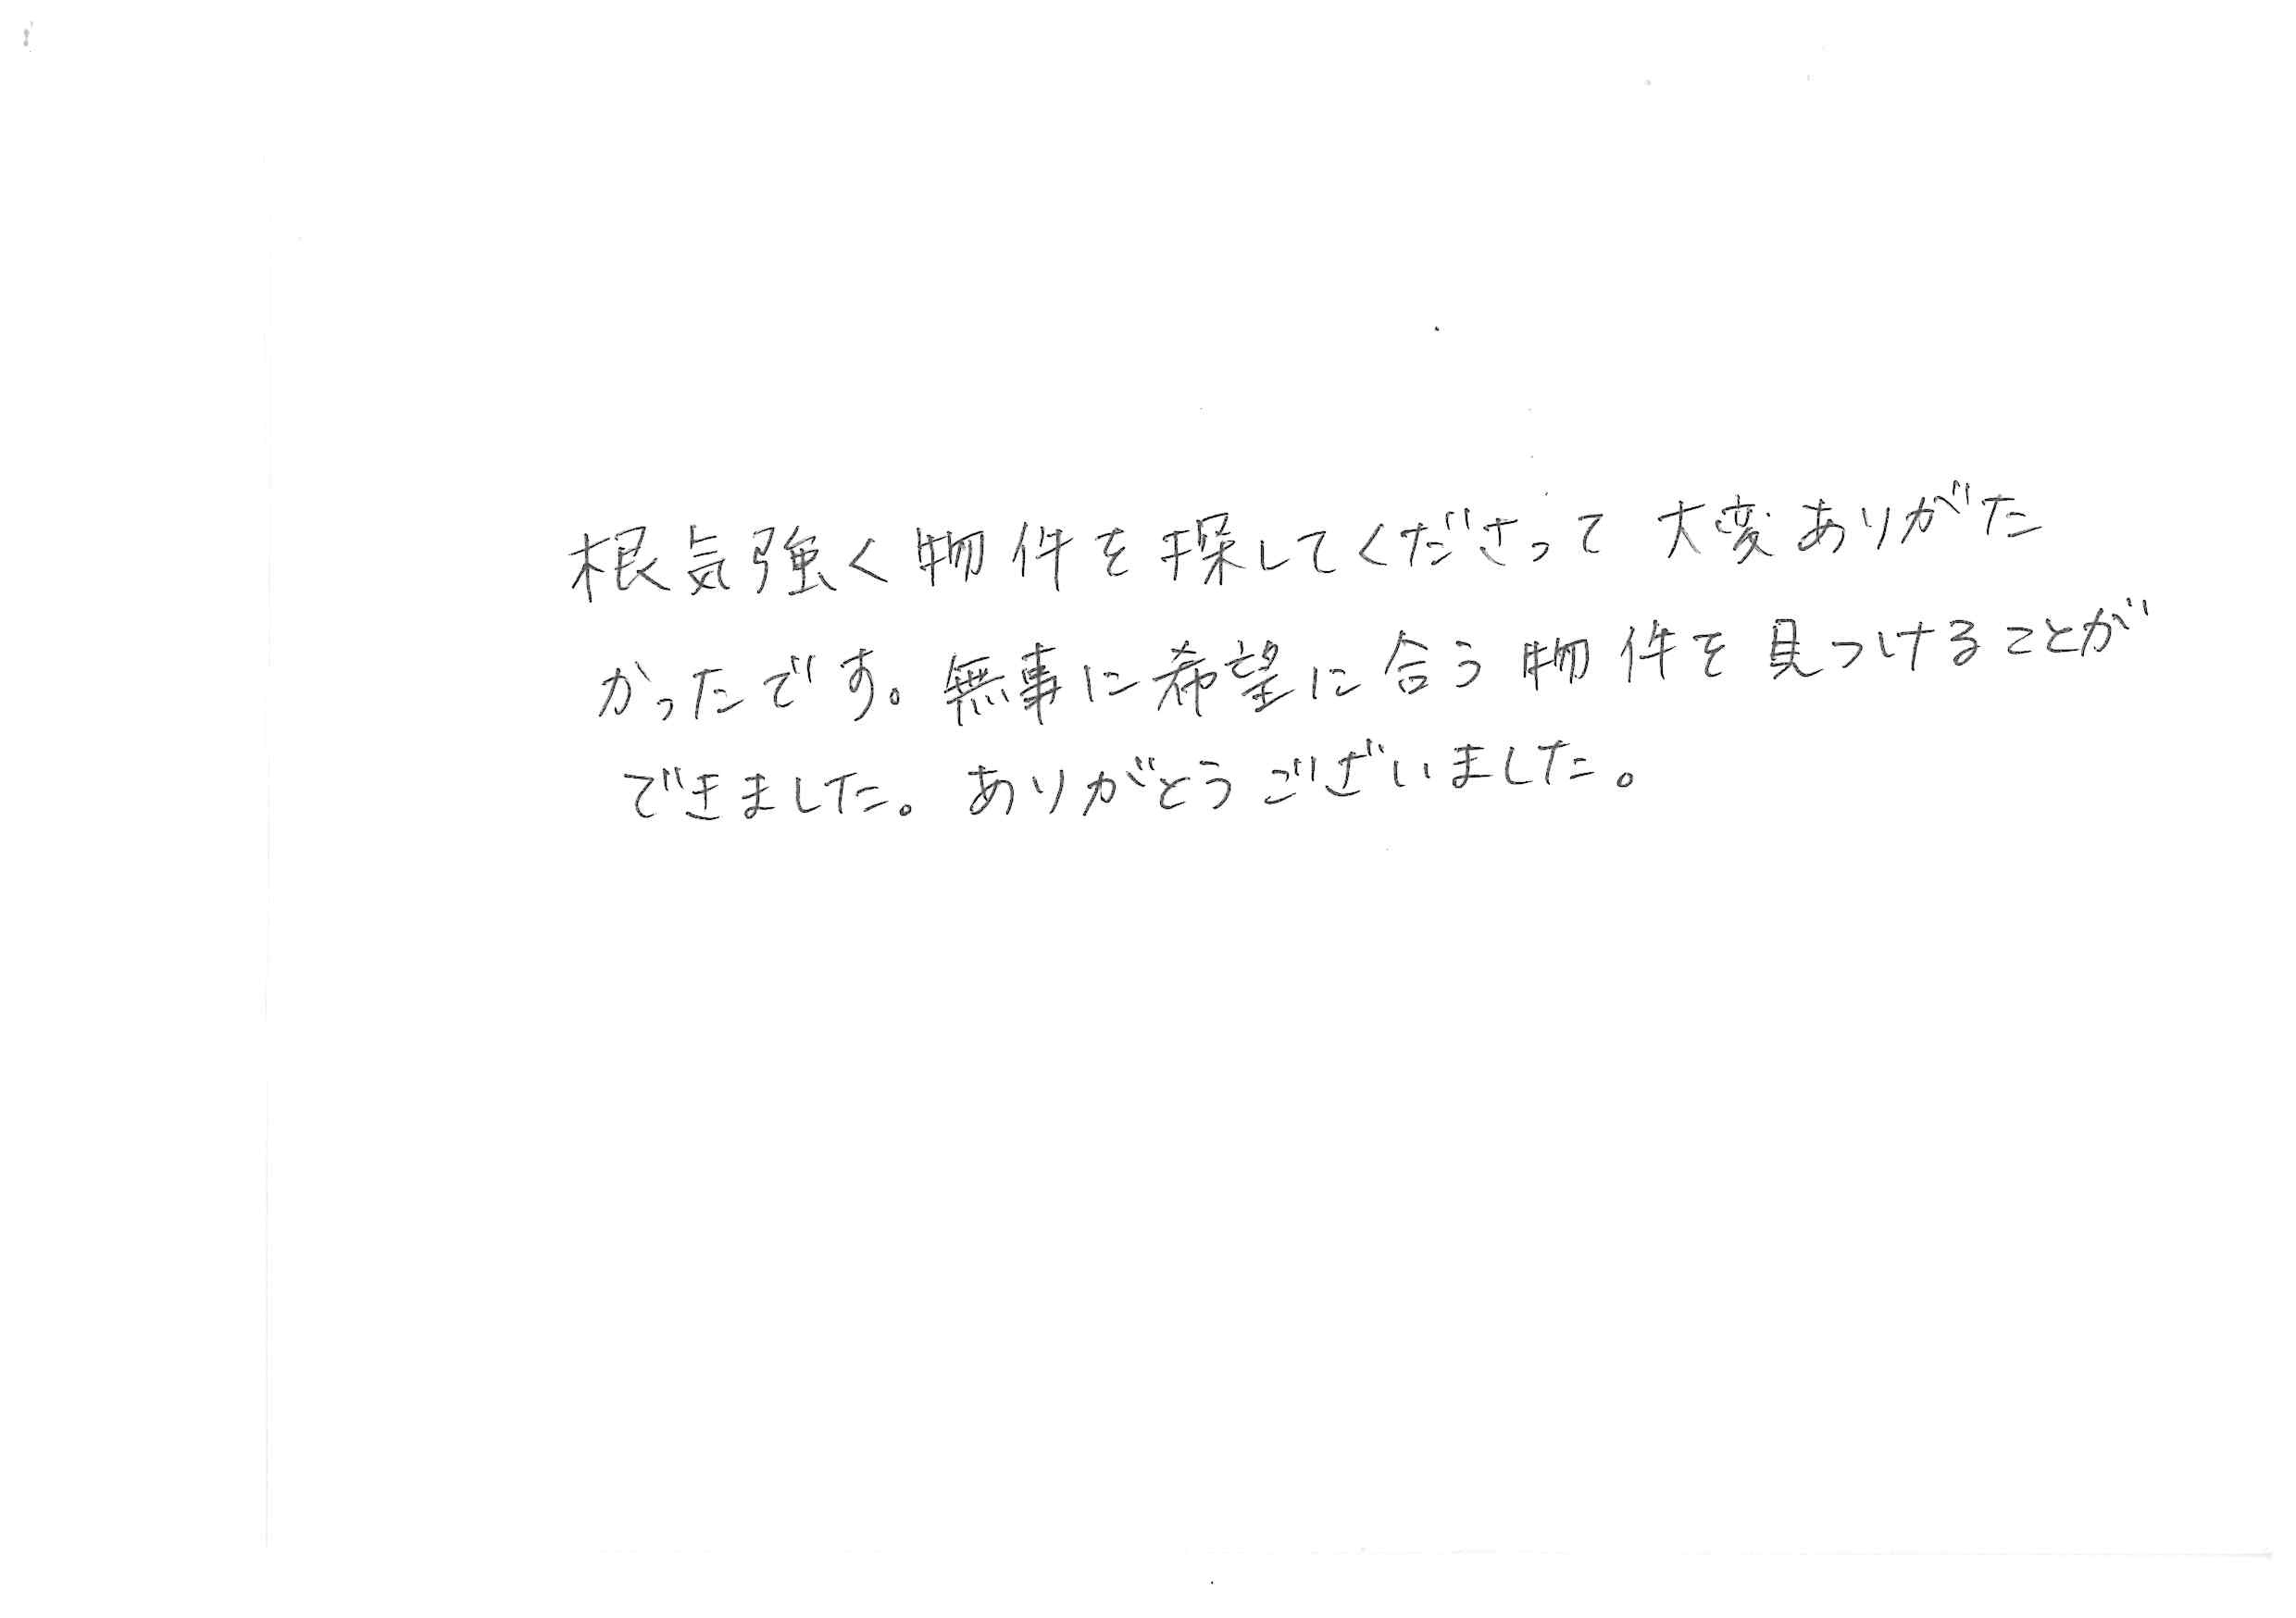 根気強く物件を探してくださって大変ありがた
かったです。無事に希望に合う物件を見つけることが
できました。ありがとうございました。